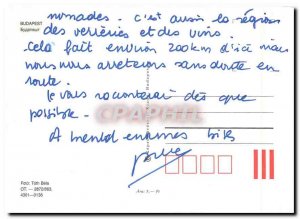 BUDAPEST
Будапешт
nomades. c'est aussi la région
des verreries et des vins.
cela fait environ 200km d'ici mais
nous nous arrêterons sans doute en
route.
je vous raconterai dès que
possible.
A bientôt énormes bises
CPARAMA.COM
Fotó: Tóth Béla